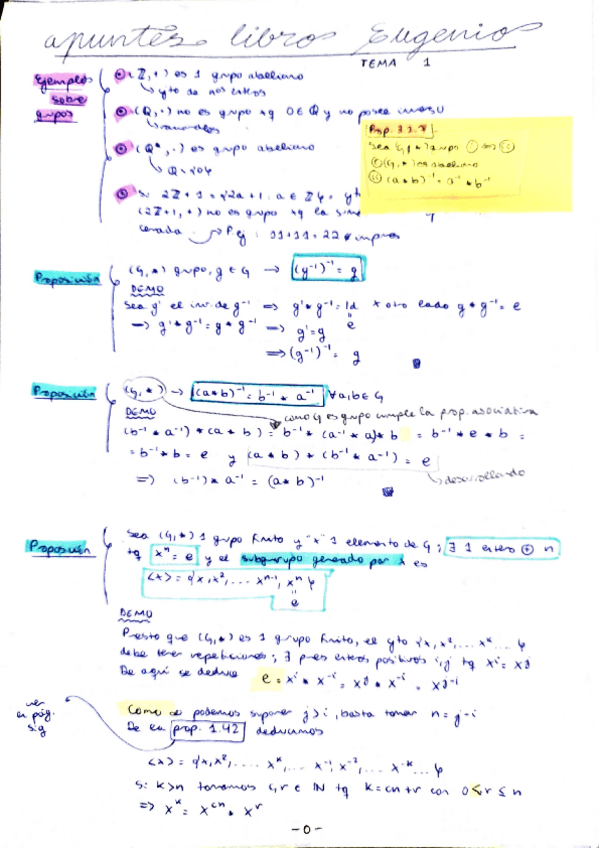 apuntes libro Eugenio
TEMA 1
Ejemplos sobre grupos
(ℤ,+) es 1 grupo abeliano
cjto de nos enteros
(Q,·) no es grupo xq 0∈Q y no posee inverso
racionales
(Q*,·) es grupo abeliano
Q-{0}
Si 2ℤ+1 = {2a+1: a∈ℤ}
(2ℤ+1,+) no es grupo xq la
cerrada. → P.ej: 11+11=22 impares
Sea (G,*) grupo (i) ⇔ (ii)
(i) (G,*) es abeliano
(ii) (a*b)⁻¹ = a⁻¹ * b⁻¹
Proposición
(G,*) grupo, g∈G → (g⁻¹)⁻¹ = g
DEMO
Sea g' el inv. de g⁻¹ ⇒ g' * g⁻¹ = Id x otro lado g * g⁻¹ = e
e
⇒ g' * g⁻¹ = g * g⁻¹ ⇒ g' = g
⇒ (g⁻¹)⁻¹ = g
Proposición
(G,*) → (a*b)⁻¹ = b⁻¹ * a⁻¹ ∀a,b∈G
DEMO
como G es grupo cumple la prop. asociativa
(b⁻¹ * a⁻¹) * (a * b) = b⁻¹ * (a⁻¹ * a) * b = b⁻¹ * e * b =
= b⁻¹ * b = e y (a * b) * (b⁻¹ * a⁻¹) = e
desarrollando
⇒ (b⁻¹) * a⁻¹ = (a * b)⁻¹
Proposición
Sea (G,*) 1 grupo finito y "x" 1 elemento de G; ∃ 1 entero ⊕ n
tq xⁿ = e y el subgrupo generado por x es
<x> = {x, x², ... xⁿ⁻¹, xⁿ}
e
DEMO
Puesto que (G,*) es 1 grupo finito, el cjto {x, x², ... xᵏ ... }
debe tener repeticiones; ∃ pues enteros positivos i,j tq xⁱ = xʲ
De aquí se deduce e = xⁱ * x⁻ⁱ = xʲ * x⁻ⁱ = xʲ⁻ⁱ
ver en pág. sig
Como podemos suponer j>i, basta tomar n = j-i
De la prop. 1.42 deducimos
<x> = {x, x², ... xᵏ, ... x⁻¹, x⁻², ... x⁻ᵏ ... }
Si k>n tomamos c,r ∈ ℕ tq k = cn+r con 0≤r≤n
⇒ xᵏ = xᶜⁿ * xʳ
-0-